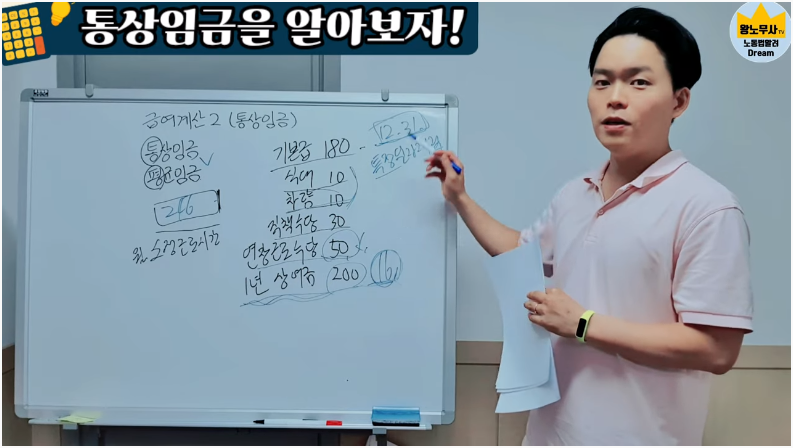 통상임금을 알아보자!
왕노무사TV
노동법알려
Dream
급여계산2 (통상임금)
통상임금
평균임금
월 소정근로시간
기본급 180
식대 10
차량 10
직책수당 30
연장근로수당 50
1년 상여금 200
12.31
특정일자